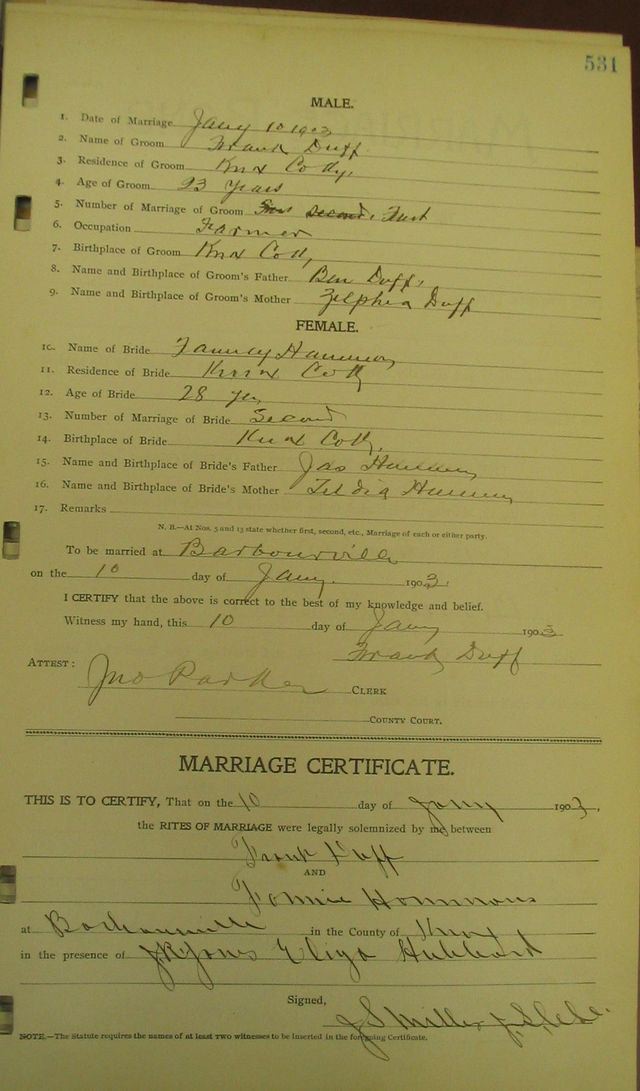 531
MALE.
1. Date of Marriage Jany 10 1903
2. Name of Groom Frank Duff
3. Residence of Groom Knox Co Ky,
4. Age of Groom 23 years
5. Number of Marriage of Groom second, First
6. Occupation Farmer
7. Birthplace of Groom Knox Co Ky,
8. Name and Birthplace of Groom's Father Ben Duff,
9. Name and Birthplace of Groom's Mother Zelphia Duff
FEMALE.
10. Name of Bride
11. Residence of Bride Knox Co Ky
12. Age of Bride 28 yrs
13. Number of Marriage of Bride Second
14. Birthplace of Bride Knox Co Ky,
15. Name and Birthplace of Bride's Father Jas
16. Name and Birthplace of Bride's Mother
17. Remarks
N. B.—At Nos. 5 and 13 state whether first, second, etc., Marriage of each or either party.
To be married at Barbourville
on the 10 day of Jany. 1903.
I CERTIFY that the above is correct to the best of my knowledge and belief.
Witness my hand, this 10 day of Jany 1903
Frank Duff
ATTEST: Jno Parker CLERK
COUNTY COURT.
MARRIAGE CERTIFICATE.
THIS IS TO CERTIFY, That on the 10 day of Jany 1903,
the RITES OF MARRIAGE were legally solemnized by me between
Frank Duff
AND
Fannie Hammons
at in the County of Knox
in the presence of J.R. Jones Eliga Hubbard
Signed,
J S Miller
NOTE.—The Statute requires the names of at least TWO witnesses to be inserted in the foregoing Certificate.